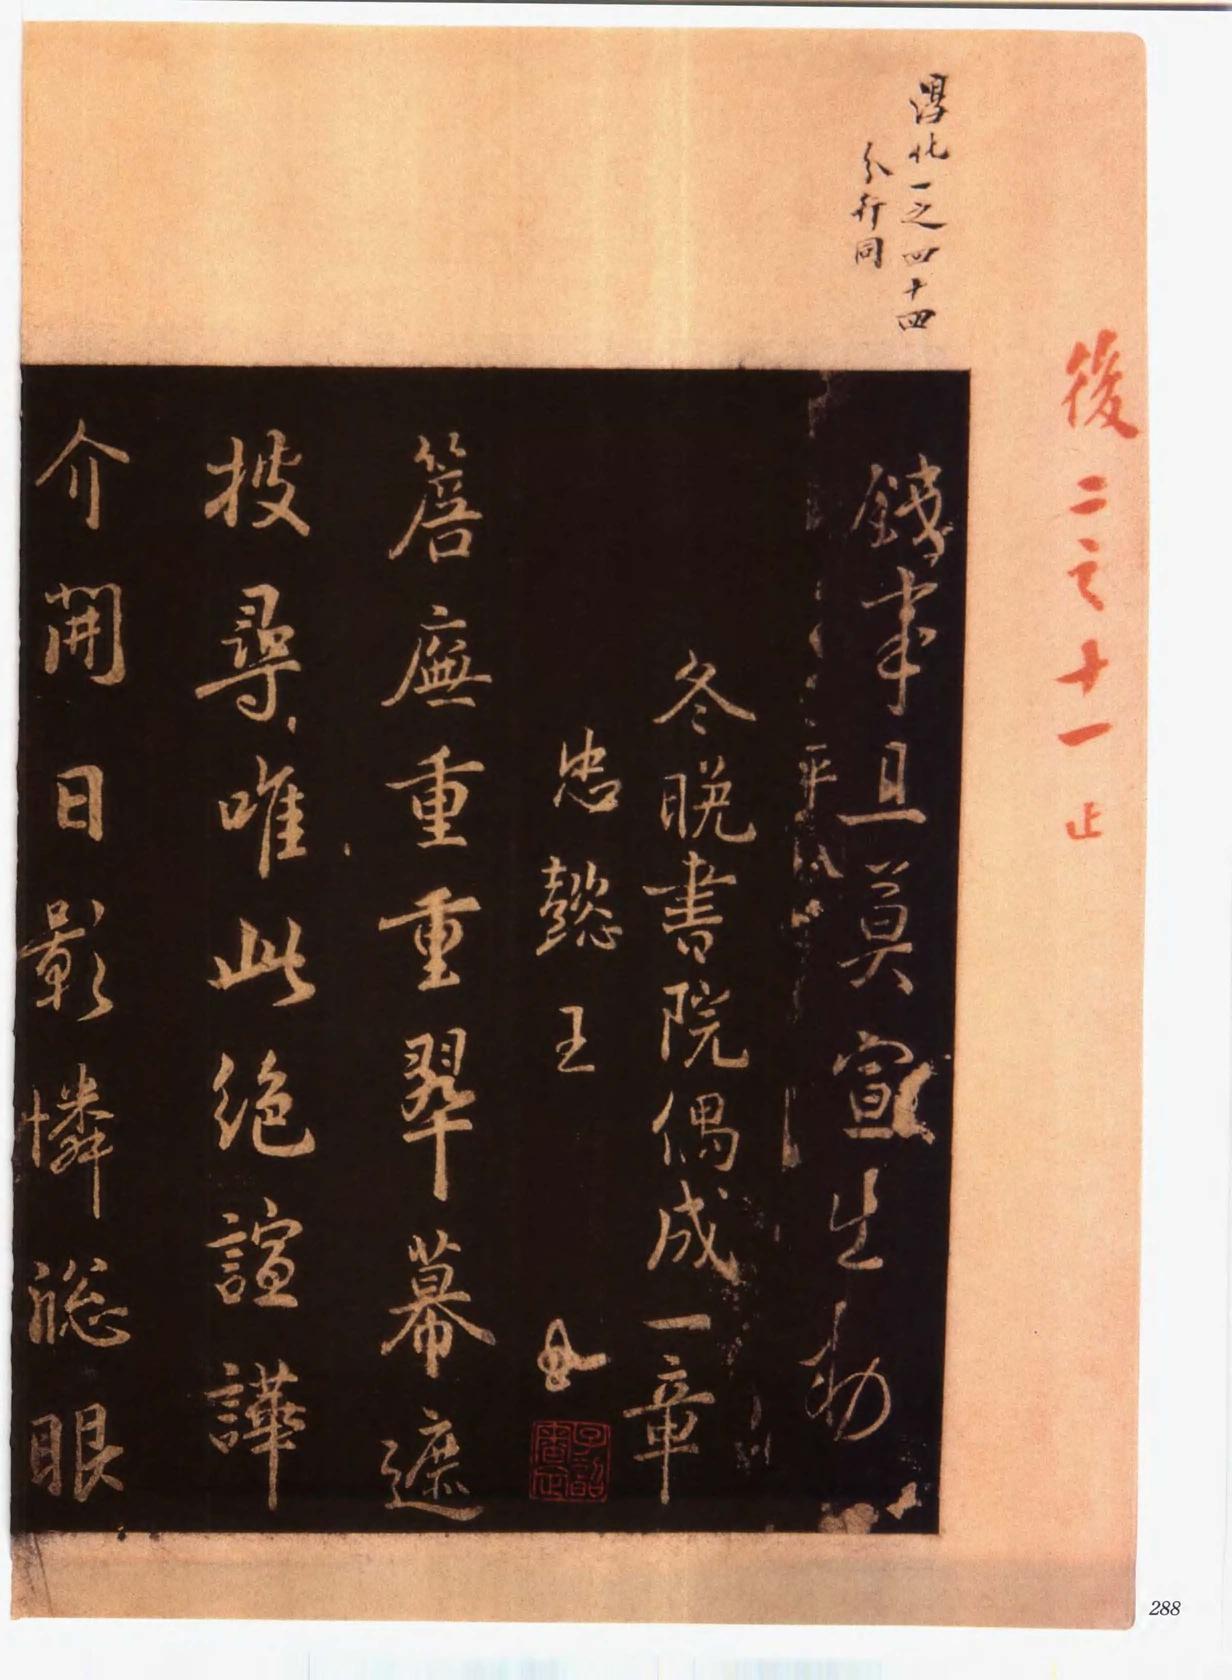 後二之十一止
淳化一之四十四
分行同
錢事且莫宣生勑
冬晚書院偶成一章
忠懿王
簷廡重重翠幕遮
披尋唯此絶諠譁
介開日影憐窓眼
288